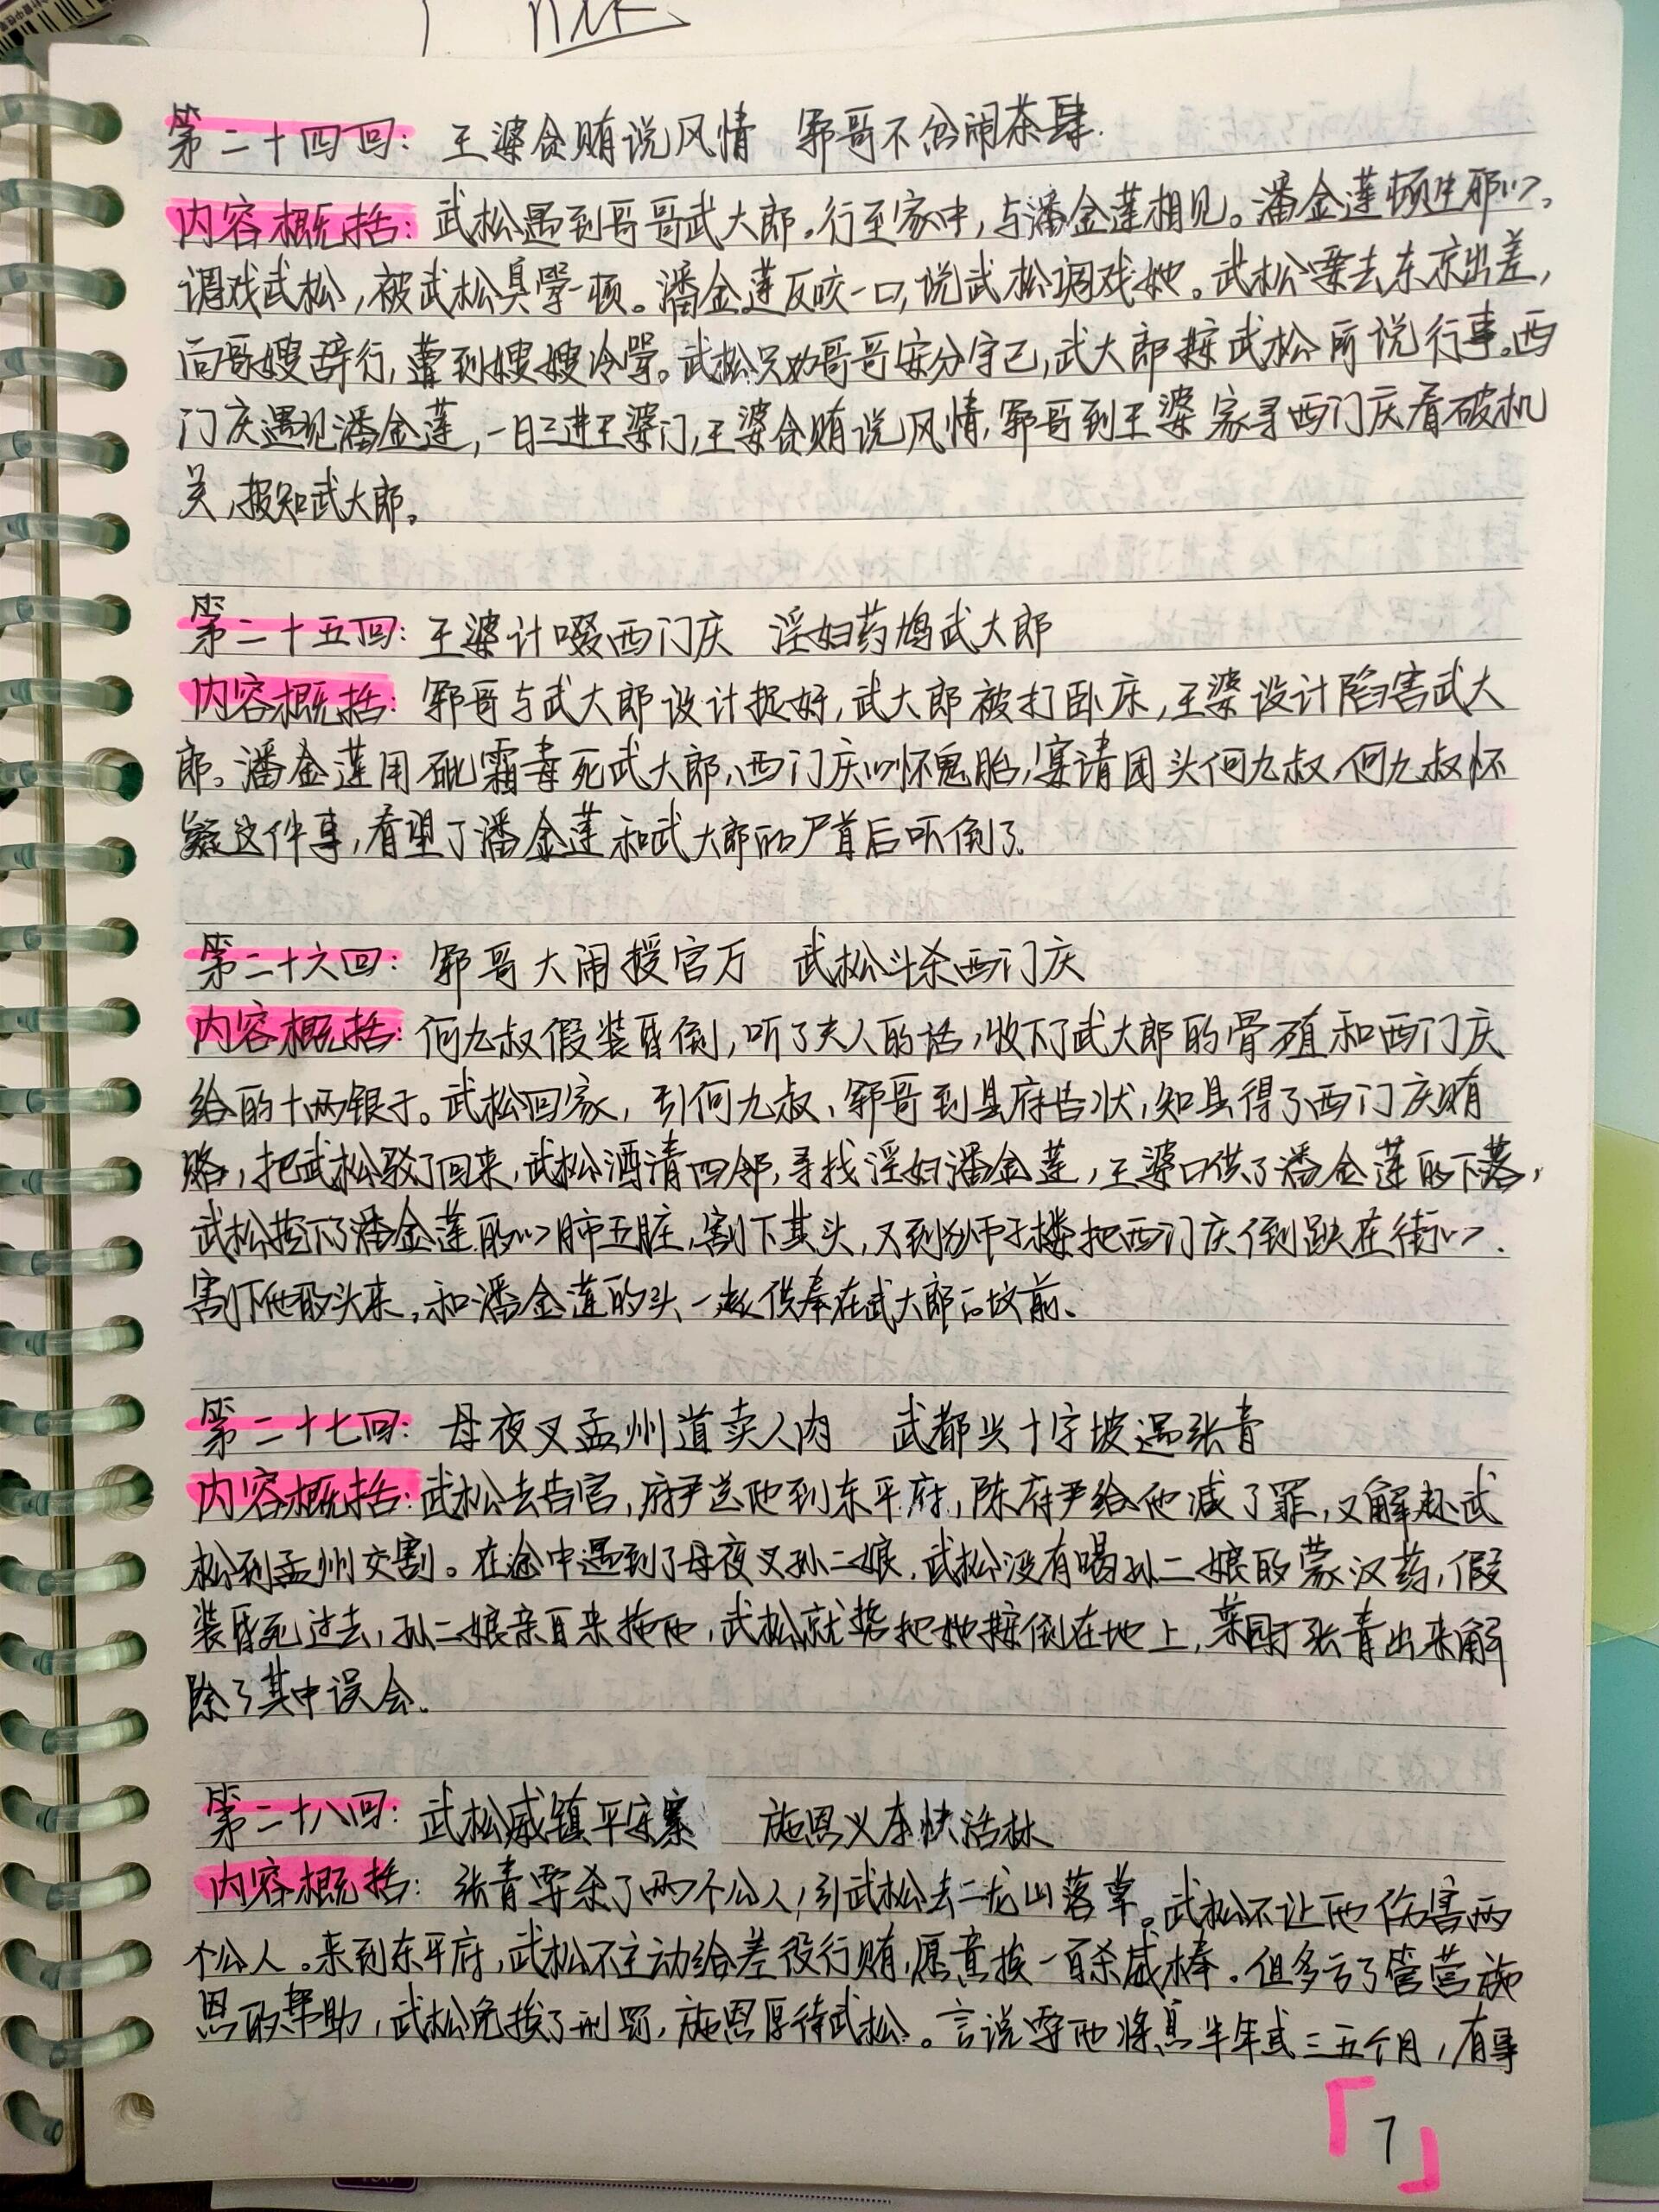 第二十四回：王婆贪贿说风情 郓哥不忿闹茶肆.
内容概括：武松遇到哥哥武大郎，行至家中，与潘金莲相见。潘金莲顿生邪心，
调戏武松，被武松臭骂一顿。潘金莲反咬一口，说武松调戏她。武松要去东京出差，
向哥嫂辞行，遭到嫂嫂冷骂。武松只劝哥哥安分守己，武大郎按武松所说行事。西
门庆遇见潘金莲，一日三进王婆门，王婆贪贿说风情，郓哥到王婆家寻西门庆看破机
关，报知武大郎。
第二十五回：王婆计啜西门庆 淫妇药鸩武大郎
内容概括：郓哥与武大郎设计捉奸，武大郎被打卧床，王婆设计陷害武大
郎。潘金莲用砒霜毒死武大郎，西门庆心怀鬼胎，宴请团头何九叔，何九叔怀
疑这件事，看望了潘金莲和武大郎的尸首后吓倒了.
第二十六回：郓哥大闹授官厅 武松斗杀西门庆
内容概括：何九叔假装昏倒，听了夫人的话，收下了武大郎的骨殖和西门庆
给的十两银子。武松回家，引何九叔、郓哥到县府告状，知县得了西门庆贿
赂，把武松驳了回来，武松酒请四邻，寻找淫妇潘金莲，王婆口供了潘金莲的下落，
武松挖下了潘金莲的心肺五脏，割下其头，又到狮子楼把西门庆倒跌在街心.
割下他的头来，和潘金莲的头一起供奉在武大郎的坟前、
第二十七回：母夜叉孟州道卖人肉 武都头十字坡遇张青
内容概括：武松去告官，府尹送他到东平府，陈府尹给他减了罪，又解赴武
松到孟州交割。在途中遇到了母夜叉孙二娘，武松没有喝孙二娘的蒙汉药，假
装昏死过去，孙二娘亲自来拖他，武松就势把她按倒在地上，菜园子张青出来解
除了其中误会.
第二十八回：武松威镇平安寨 施恩义夺快活林
内容概括：张青要杀了两个公人，引武松去二龙山落草。武松不让他伤害两
个公人。来到东平府，武松不主动给差役行贿，愿意挨一百杀威棒。但多亏了管营施
恩的帮助，武松免挨了刑罚，施恩厚待武松。言说要他将息半年或三五个月，有事
「7」